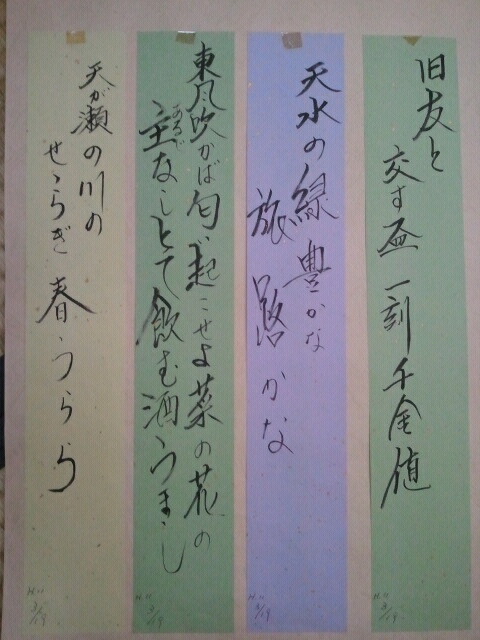 旧友と
交す盃一刻千金値
天水の緑豊かな
旅路かな
東風吹かば匂い起こせよ菜の花の
主なしとて飲む酒うまし
あるじ
天が瀬の川の
せゝらぎ春うらら
H.11
3/19
H.11
3/19
H.11
3/19
H.11
3/19